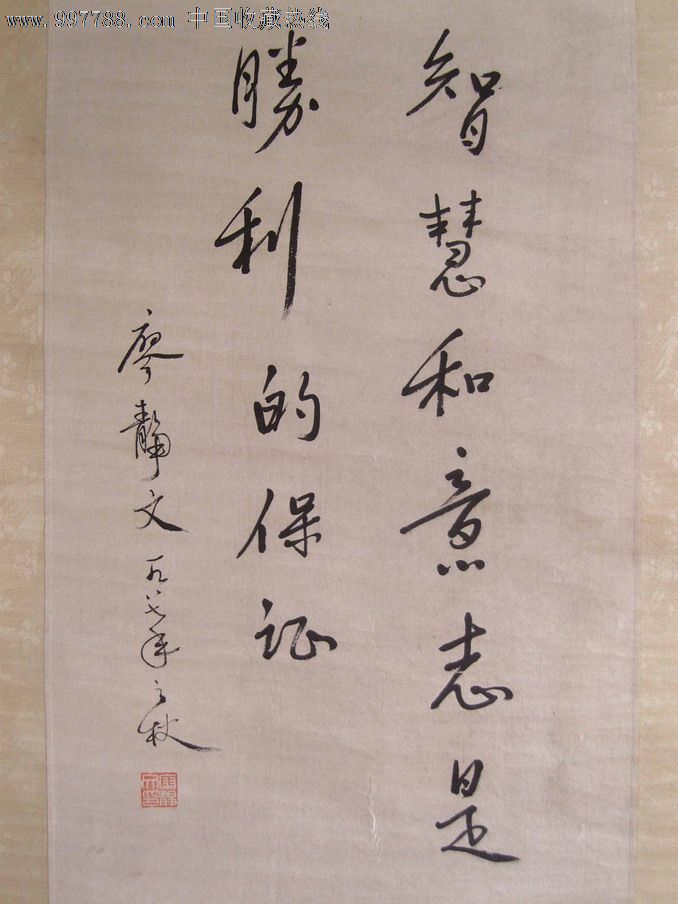 www.997788.com 中国收藏热线
智慧和意志是
勝利的保证
廖静文 一九八七年之秋